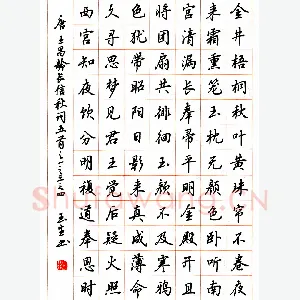 金井梧桐秋叶黄珠帘不卷夜
来霜熏笼玉枕无颜色卧听南
宫清漏长奉帚平明金殿开且
将团扇共徘徊玉颜不及寒鸦
色犹带昭阳日影来真成薄命
久寻思梦见君王觉后疑火照
西宫知夜饮分明複道奉恩时
唐王昌龄长信秋词五首之一二三四